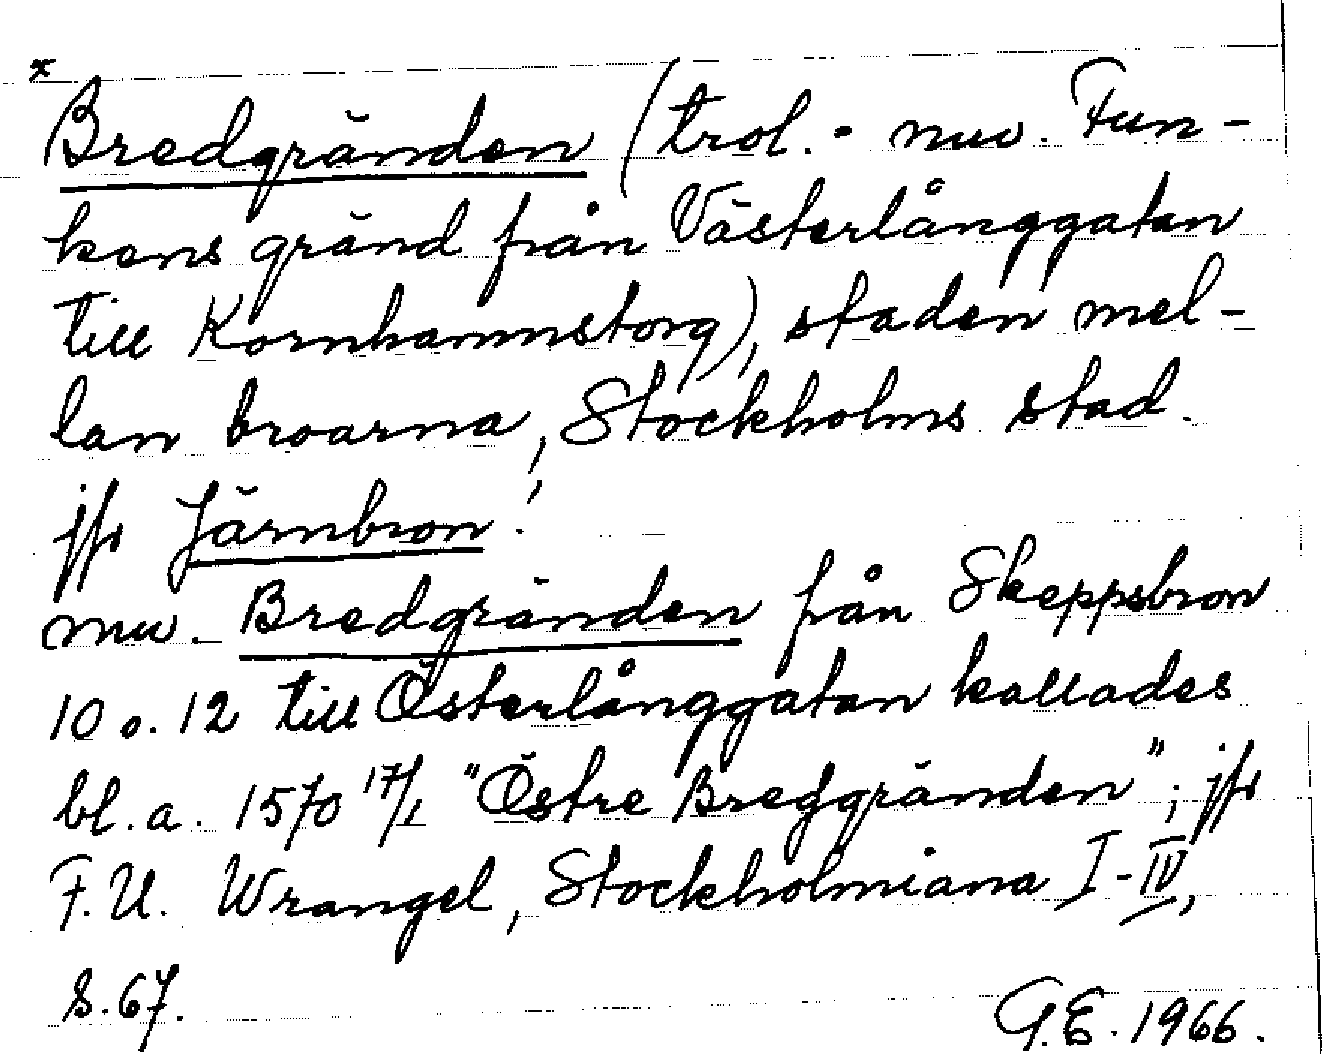 x
Bredgränden (trol. - nuv. Fun-
kens gränd från Västerlånggatan
till Kornhamnstorg), staden mel-
lan broarna, Stockholms stad.
jfr Järnbron!
nuv. Bredgränden från Skeppsbron
10 o. 12 till Österlånggatan kallades
bl. a. 1570 17/1 "Östre Bredgränden"; jfr
F. U. Wrangel, Stockholmiana I-IV,
s. 67.
G. E. 1966.